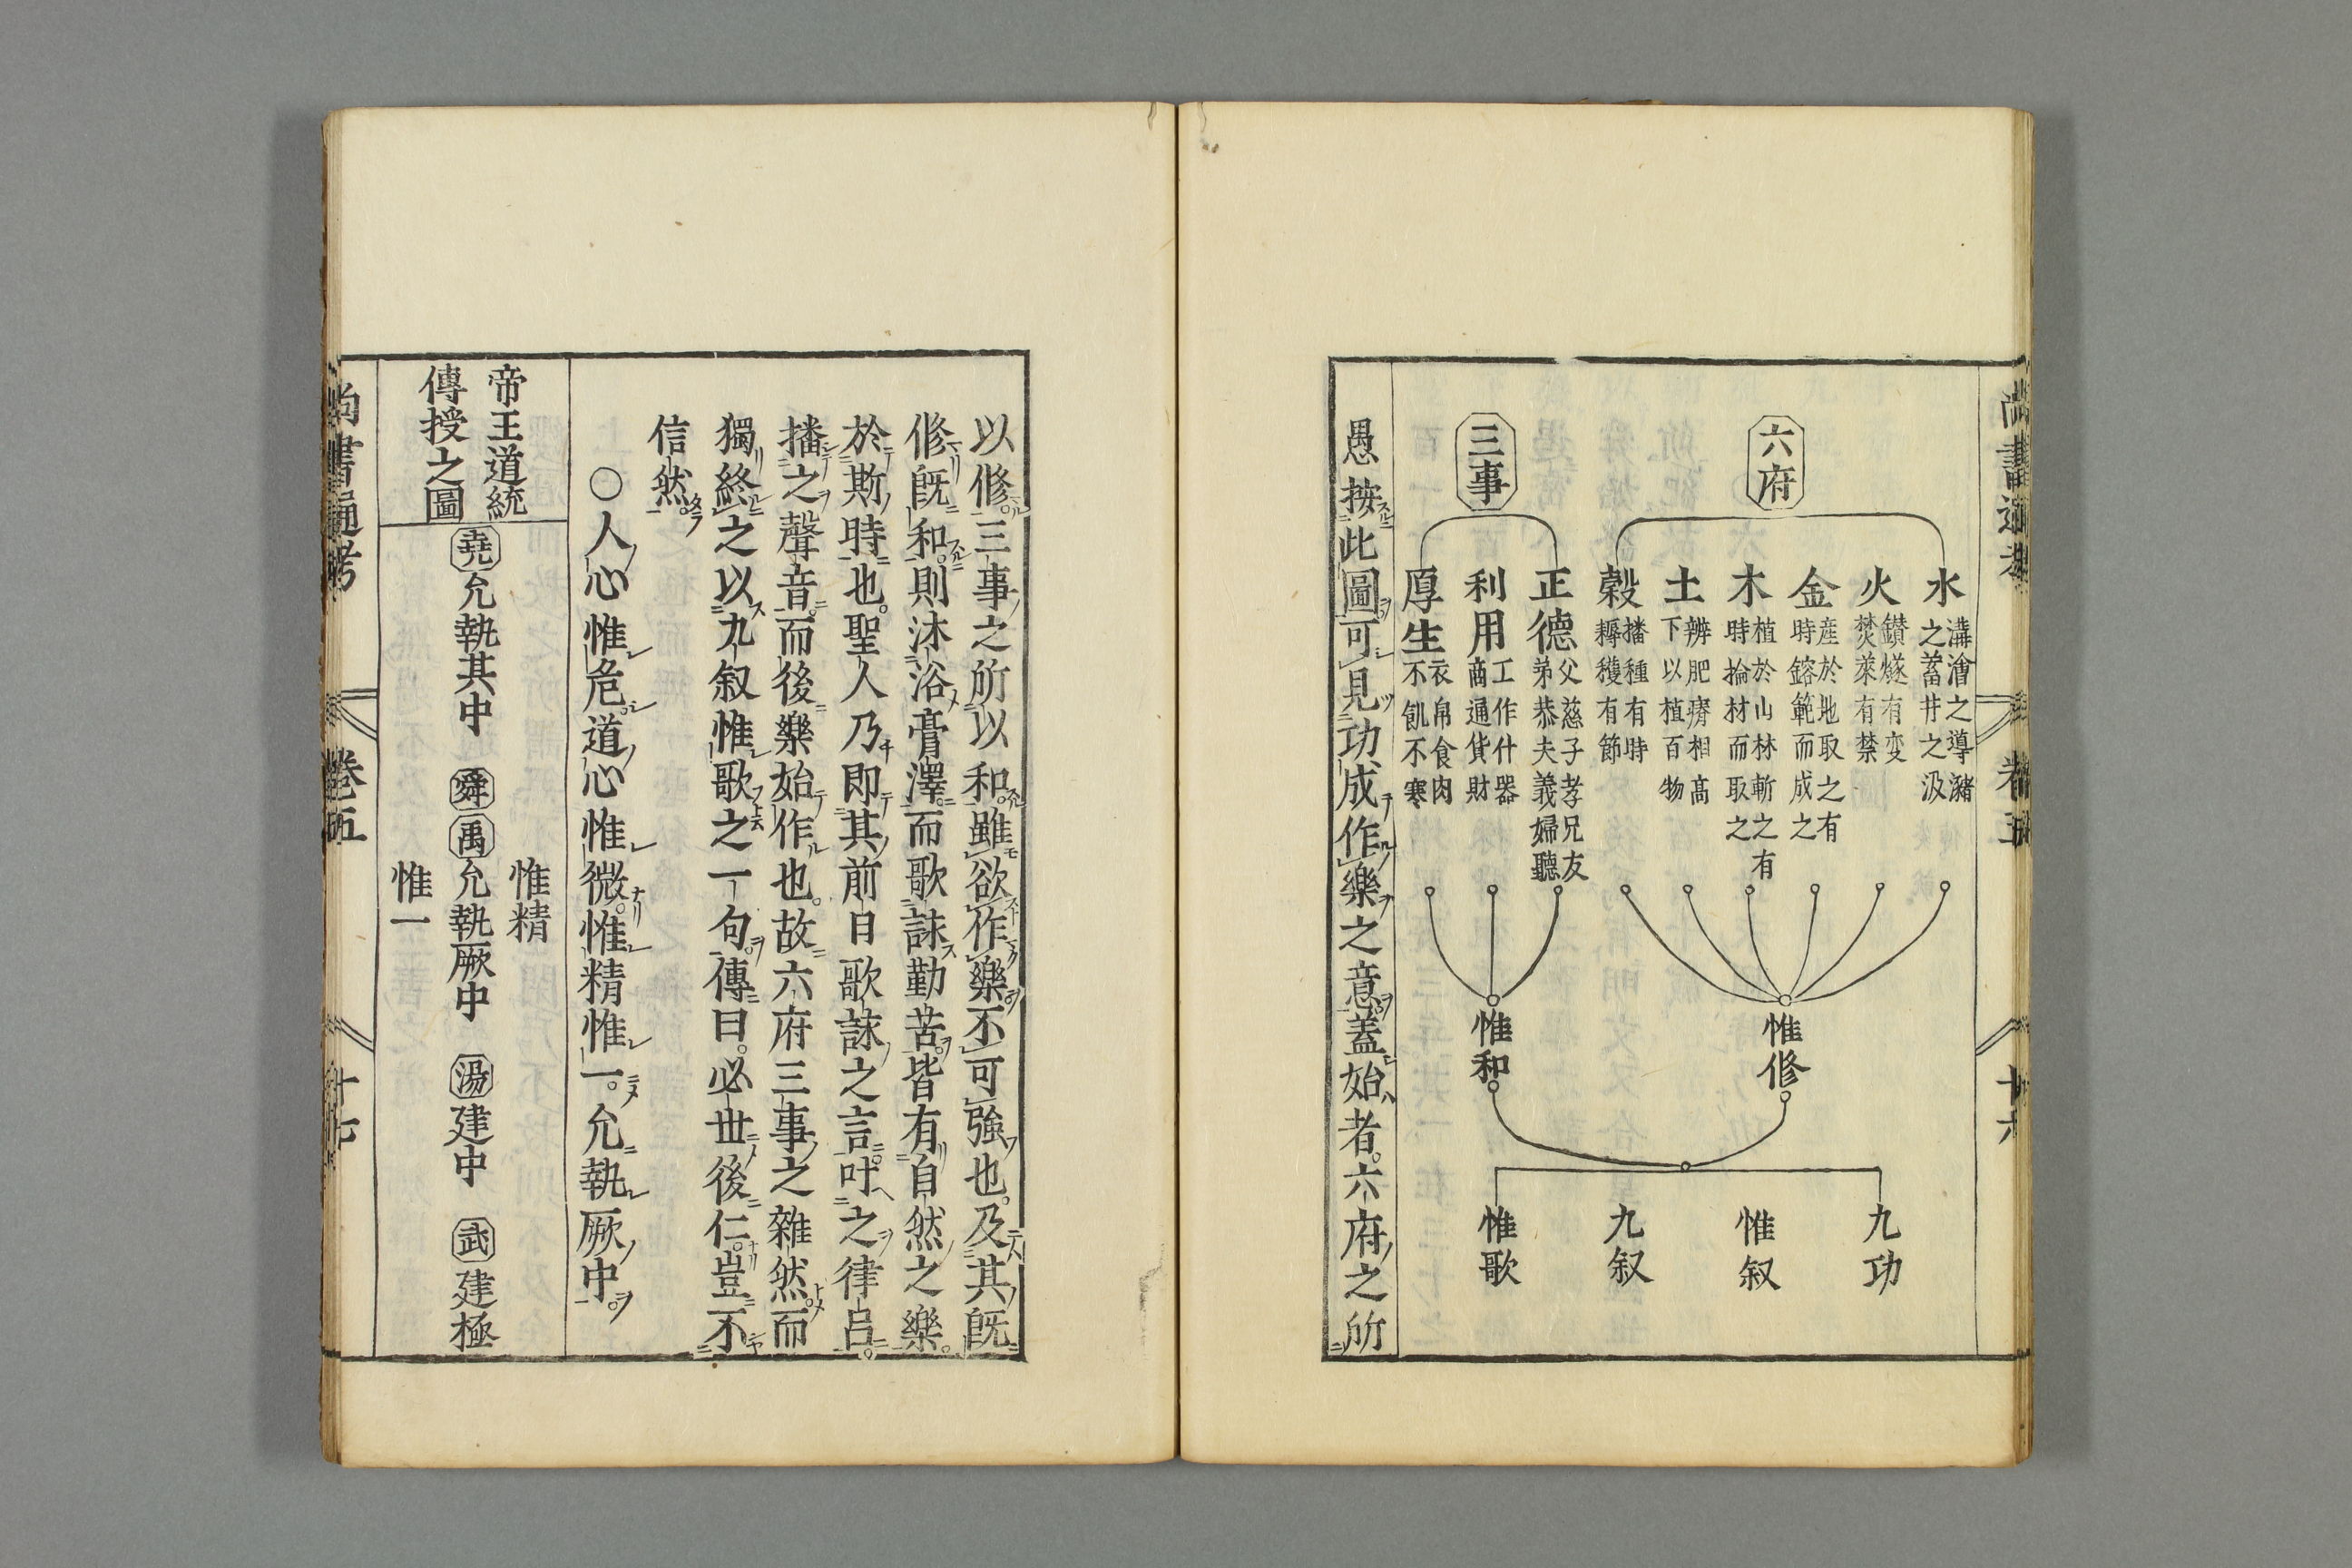 尚書通考 卷五 十六
六府
水 溝澮之導瀦
之蓄井之汲
火 鑚燧有变
焚萊有禁
金 産於地取之有
時鎔範而成之
木 植於山林斬之有
時掄材而取之
土 辨肥瘠相髙
下以植百物
穀 播種有時
耨穫有節
三事
正德 父慈子孝兄友
弟恭夫義婦聽
利用 工作什器
商通貨財
厚生 衣帛食肉
不飢不寒
惟修
惟和
九功
惟叙
九叙
惟歌
愚按此圖可見功成作樂之意蓋始者六府之所
以修三事之所以和雖欲作樂不可強也及其旣
修旣和則沐浴膏澤而歌詠勤苦皆有自然之樂
於斯時也聖人乃即其前日歌詠之言叶之律呂
播之聲音而後樂始作也故六府三事之雜然而
獨終之以九叙惟歌之一句傳曰必世後仁豈不
信然
○人心惟危道心惟微惟精惟一允執厥中
帝王道統
傳授之圖
堯允執其中
惟精
舜禹允執厥中
惟一
湯建中
武建極
尚書通考 卷五 十七